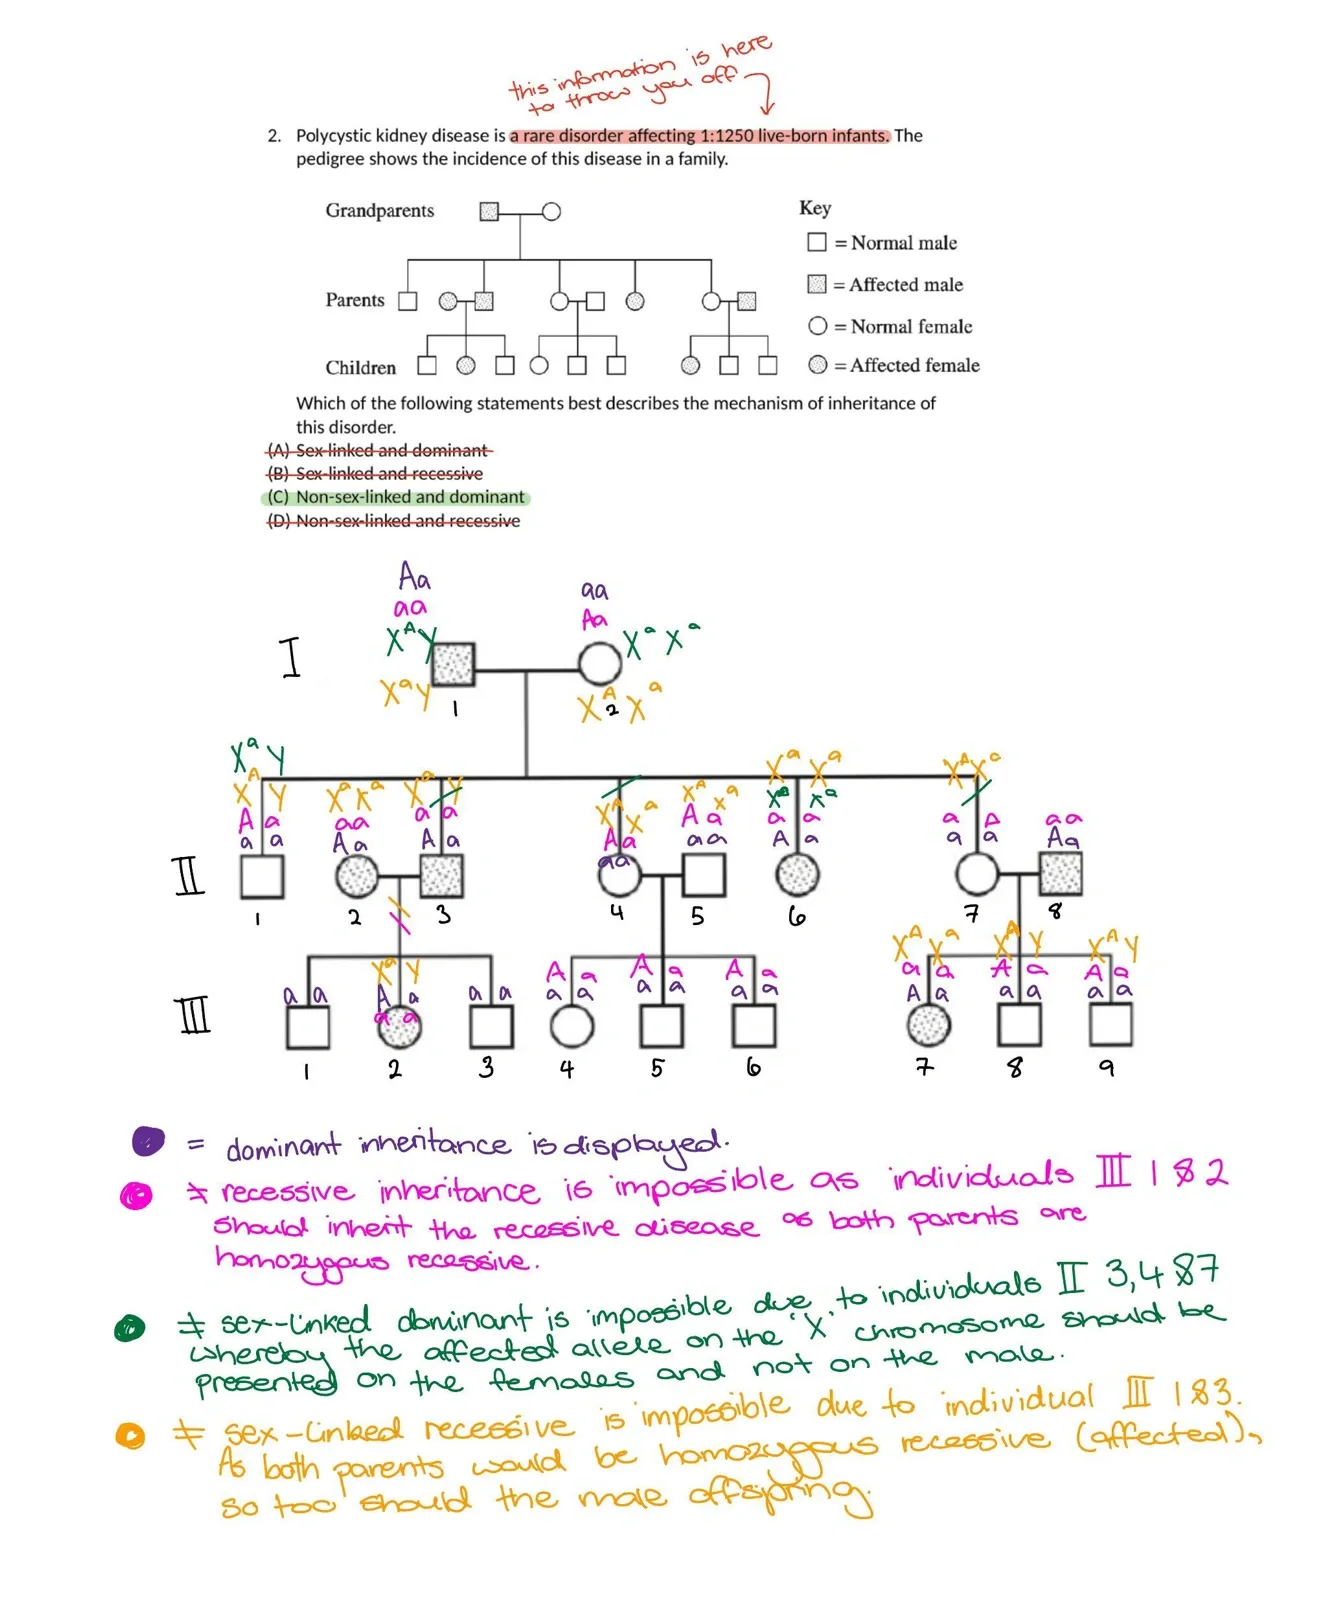 this information is here
to throw you off
2. Polycystic kidney disease is a rare disorder affecting 1:1250 live-born infants. The
pedigree shows the incidence of this disease in a family.
Grandparents
Key
= Normal male
= Affected male
Parents
= Normal female
Children
= Affected female
Which of the following statements best describes the mechanism of inheritance of
this disorder.
(A) Sex-linked and dominant
(B) Sex-linked and recessive
(C) Non-sex-linked and dominant
(D) Non-sex-linked and recessive
Aa aa
aa Aa
XᴬY XᵃXᵃ
I
XᵃY XᴬXᵃ
1 2
XᵃY
XᵃXᵃ XᴬXᵃ
XᴬY XᵃXᵃ XᵃY XᴬXᵃ XᴬXᵃ XᴬXᵃ
Aa aa aa Aa Aa aa aA aa
aa Aa Aa aa aa Aa aa Aa
II
1 2 3 4 5 6 7 8
XᴬXᵃ XᴬY XᴬY
XᵃY Aa Aa Aa aa Aa Aa
aa Aa aa aa aa aa Aa aa aa
aa
III
1 2 3 4 5 6 7 8 9
= dominant inheritance is displayed.
≠ recessive inheritance is impossible as individuals III 1 & 2
should inherit the recessive disease as both parents are
homozygous recessive.
≠ sex-linked dominant is impossible due to individuals II 3,4 & 7
whereby the affected allele on the 'X' chromosome should be
presented on the females and not on the male.
≠ sex-linked recessive is impossible due to individual III 1 & 3.
As both parents would be homozygous recessive (affected),
so too should the male offspring.